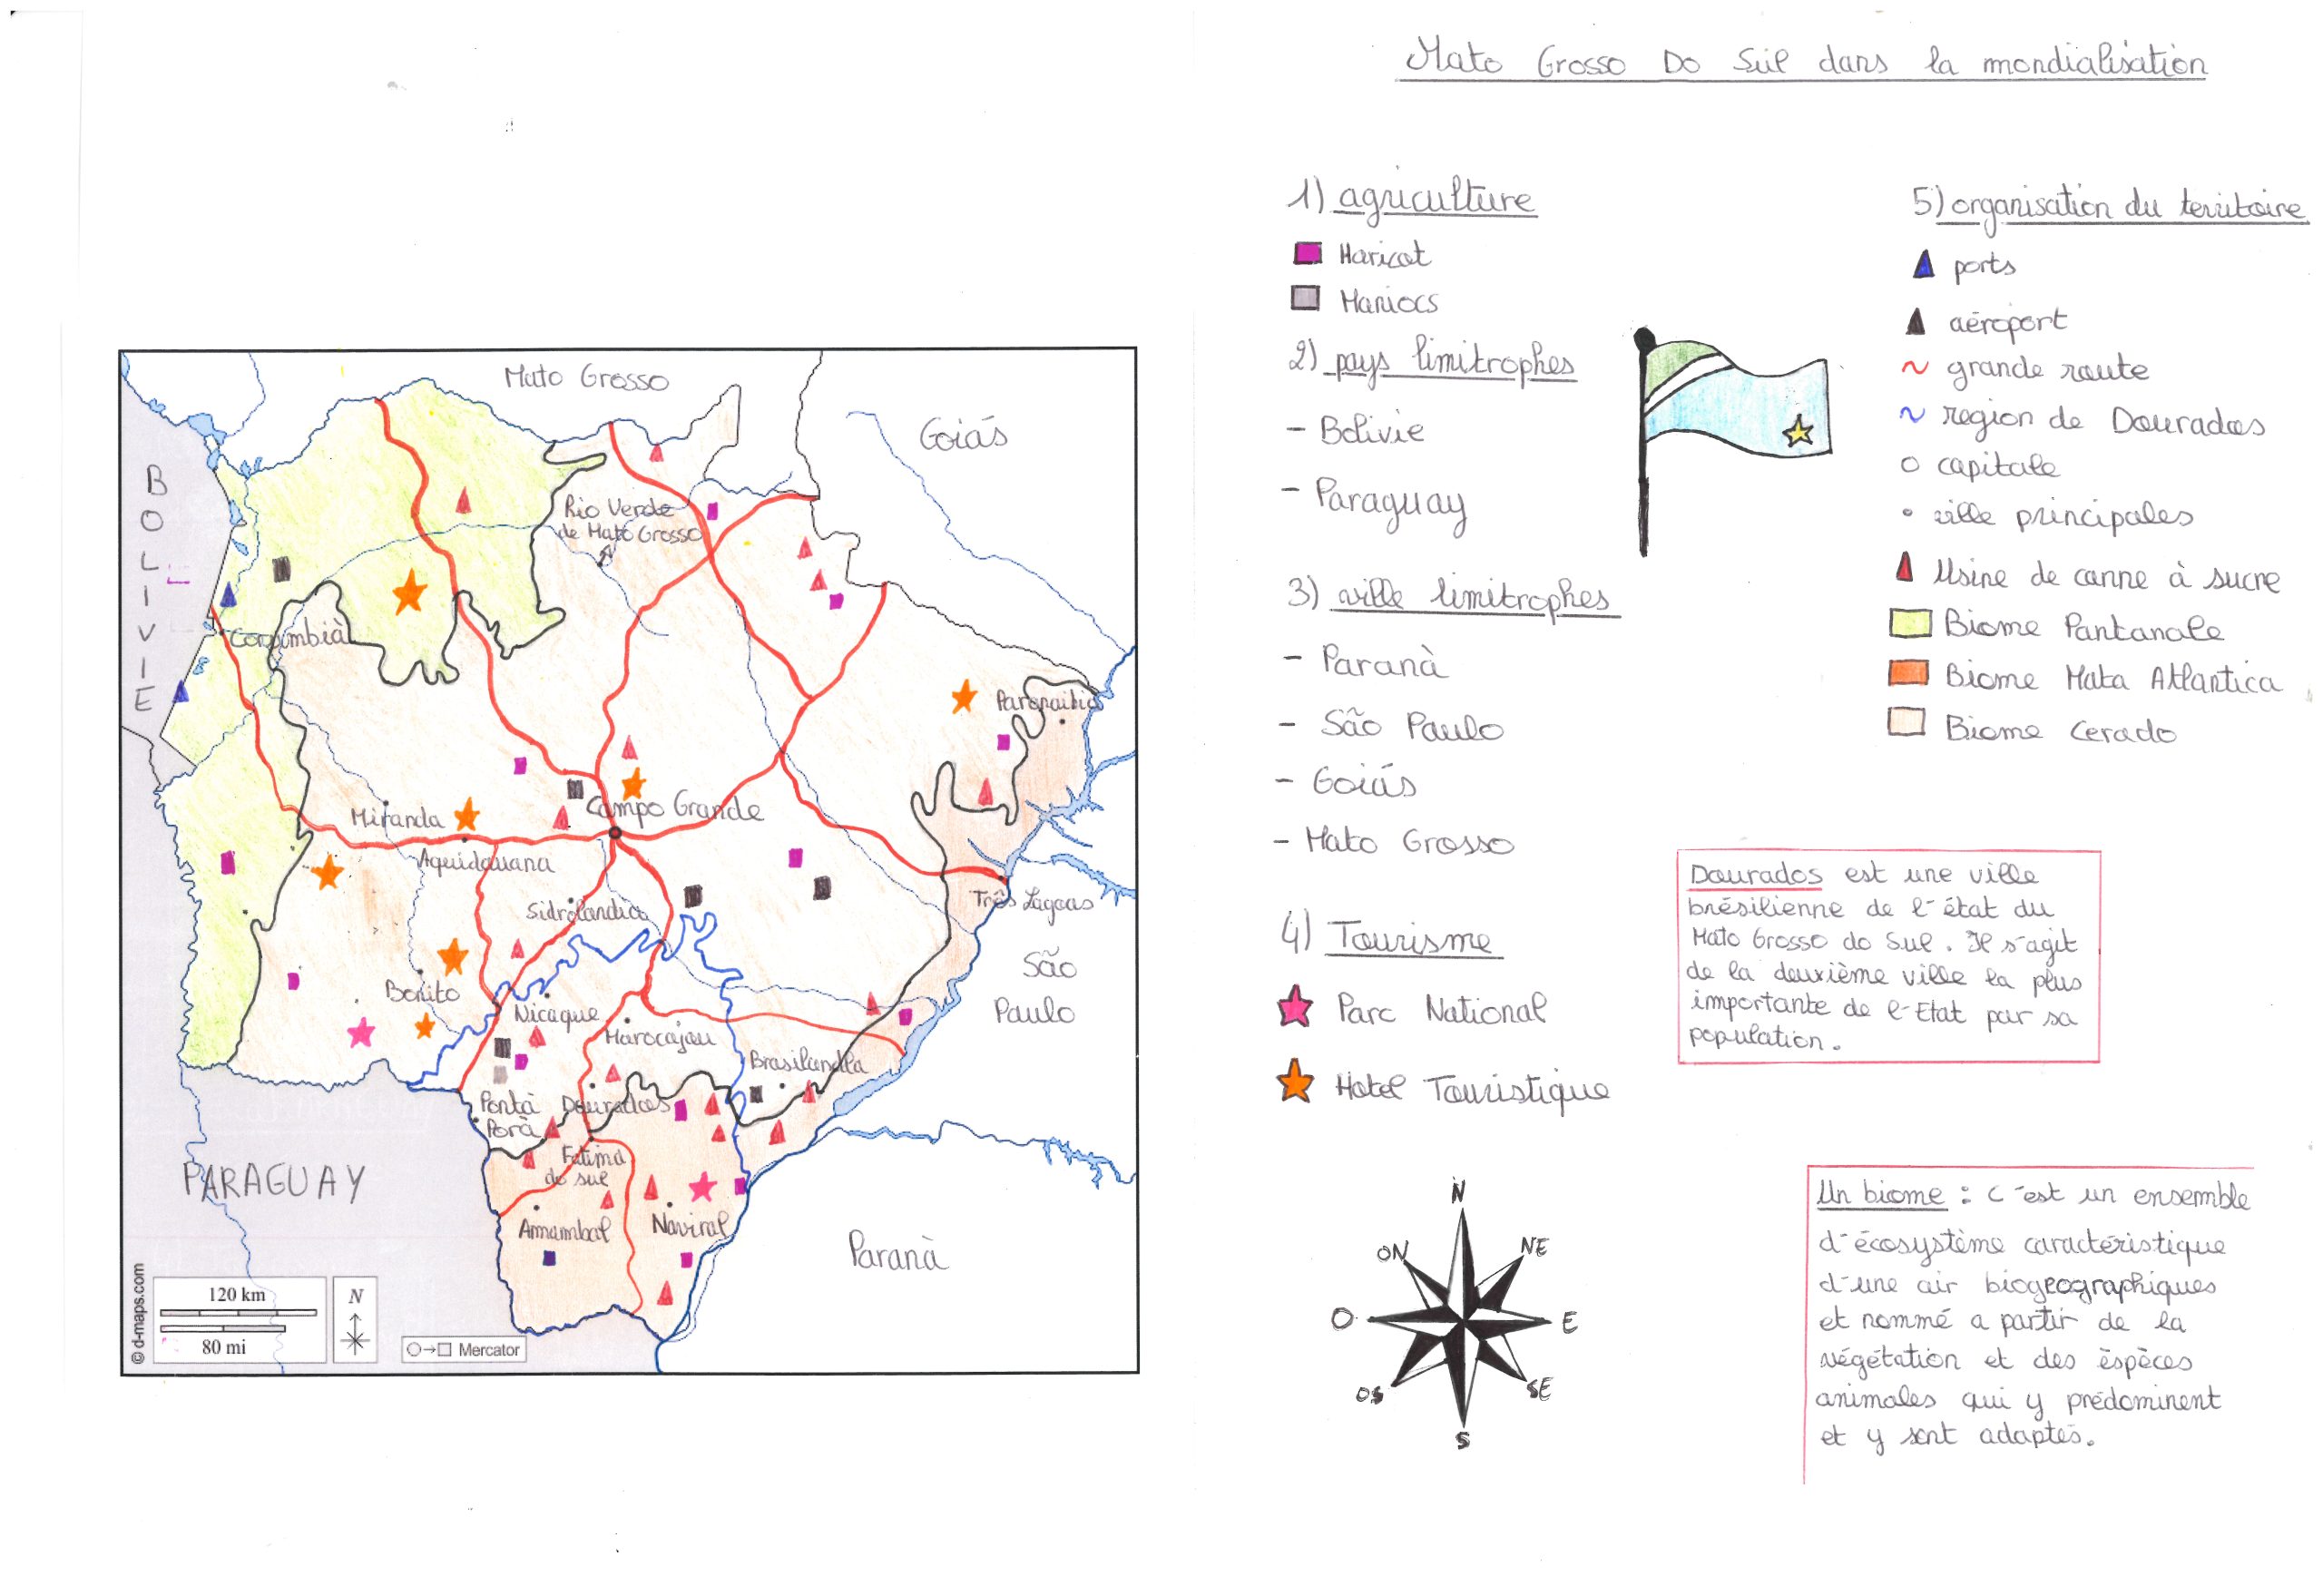 Mato Grosso Do Sul dans la mondialisation
Mato Grosso
Goiás
BOLIVIE
Rio Verde
de Mato Grosso
Corumbià
Paranaibia
Miranda
Campo Grande
Aquidauana
Três Lagoas
Sidrolandica
São
Paulo
Bonito
Nicaque
Marocajau
Brasilandla
Ponta
Porà
Dourados
Fatima
do sul
PARAGUAY
Amambal
Naviral
Paranà
120 km
80 mi
N
Mercator
© d-maps.com
1) agriculture
Haricot
Maniocs
2) pays limitrophes
- Bolivie
- Paraguay
3) ville limitrophes
- Paranà
- São Paulo
- Goiás
- Mato Grosso
4) Tourisme
Parc National
Hotel Touristique
N
NE
E
SE
S
OS
O
ON
5) organisation du territoire
ports
aéroport
grande route
region de Dourados
capitale
ville principales
Usine de canne à sucre
Biome Pantanale
Biome Mata Atlantica
Biome Cerado
Dourados est une ville
brésilienne de l'état du
Mato Grosso do Sul. Il s'agit
de la deuxième ville la plus
importante de l'Etat par sa
population.
Un biome : c'est un ensemble
d'écosystème caractéristique
d'une air biogeographiques
et nommé a partir de la
végétation et des èspèces
animales qui y prédominent
et y sont adaptés.